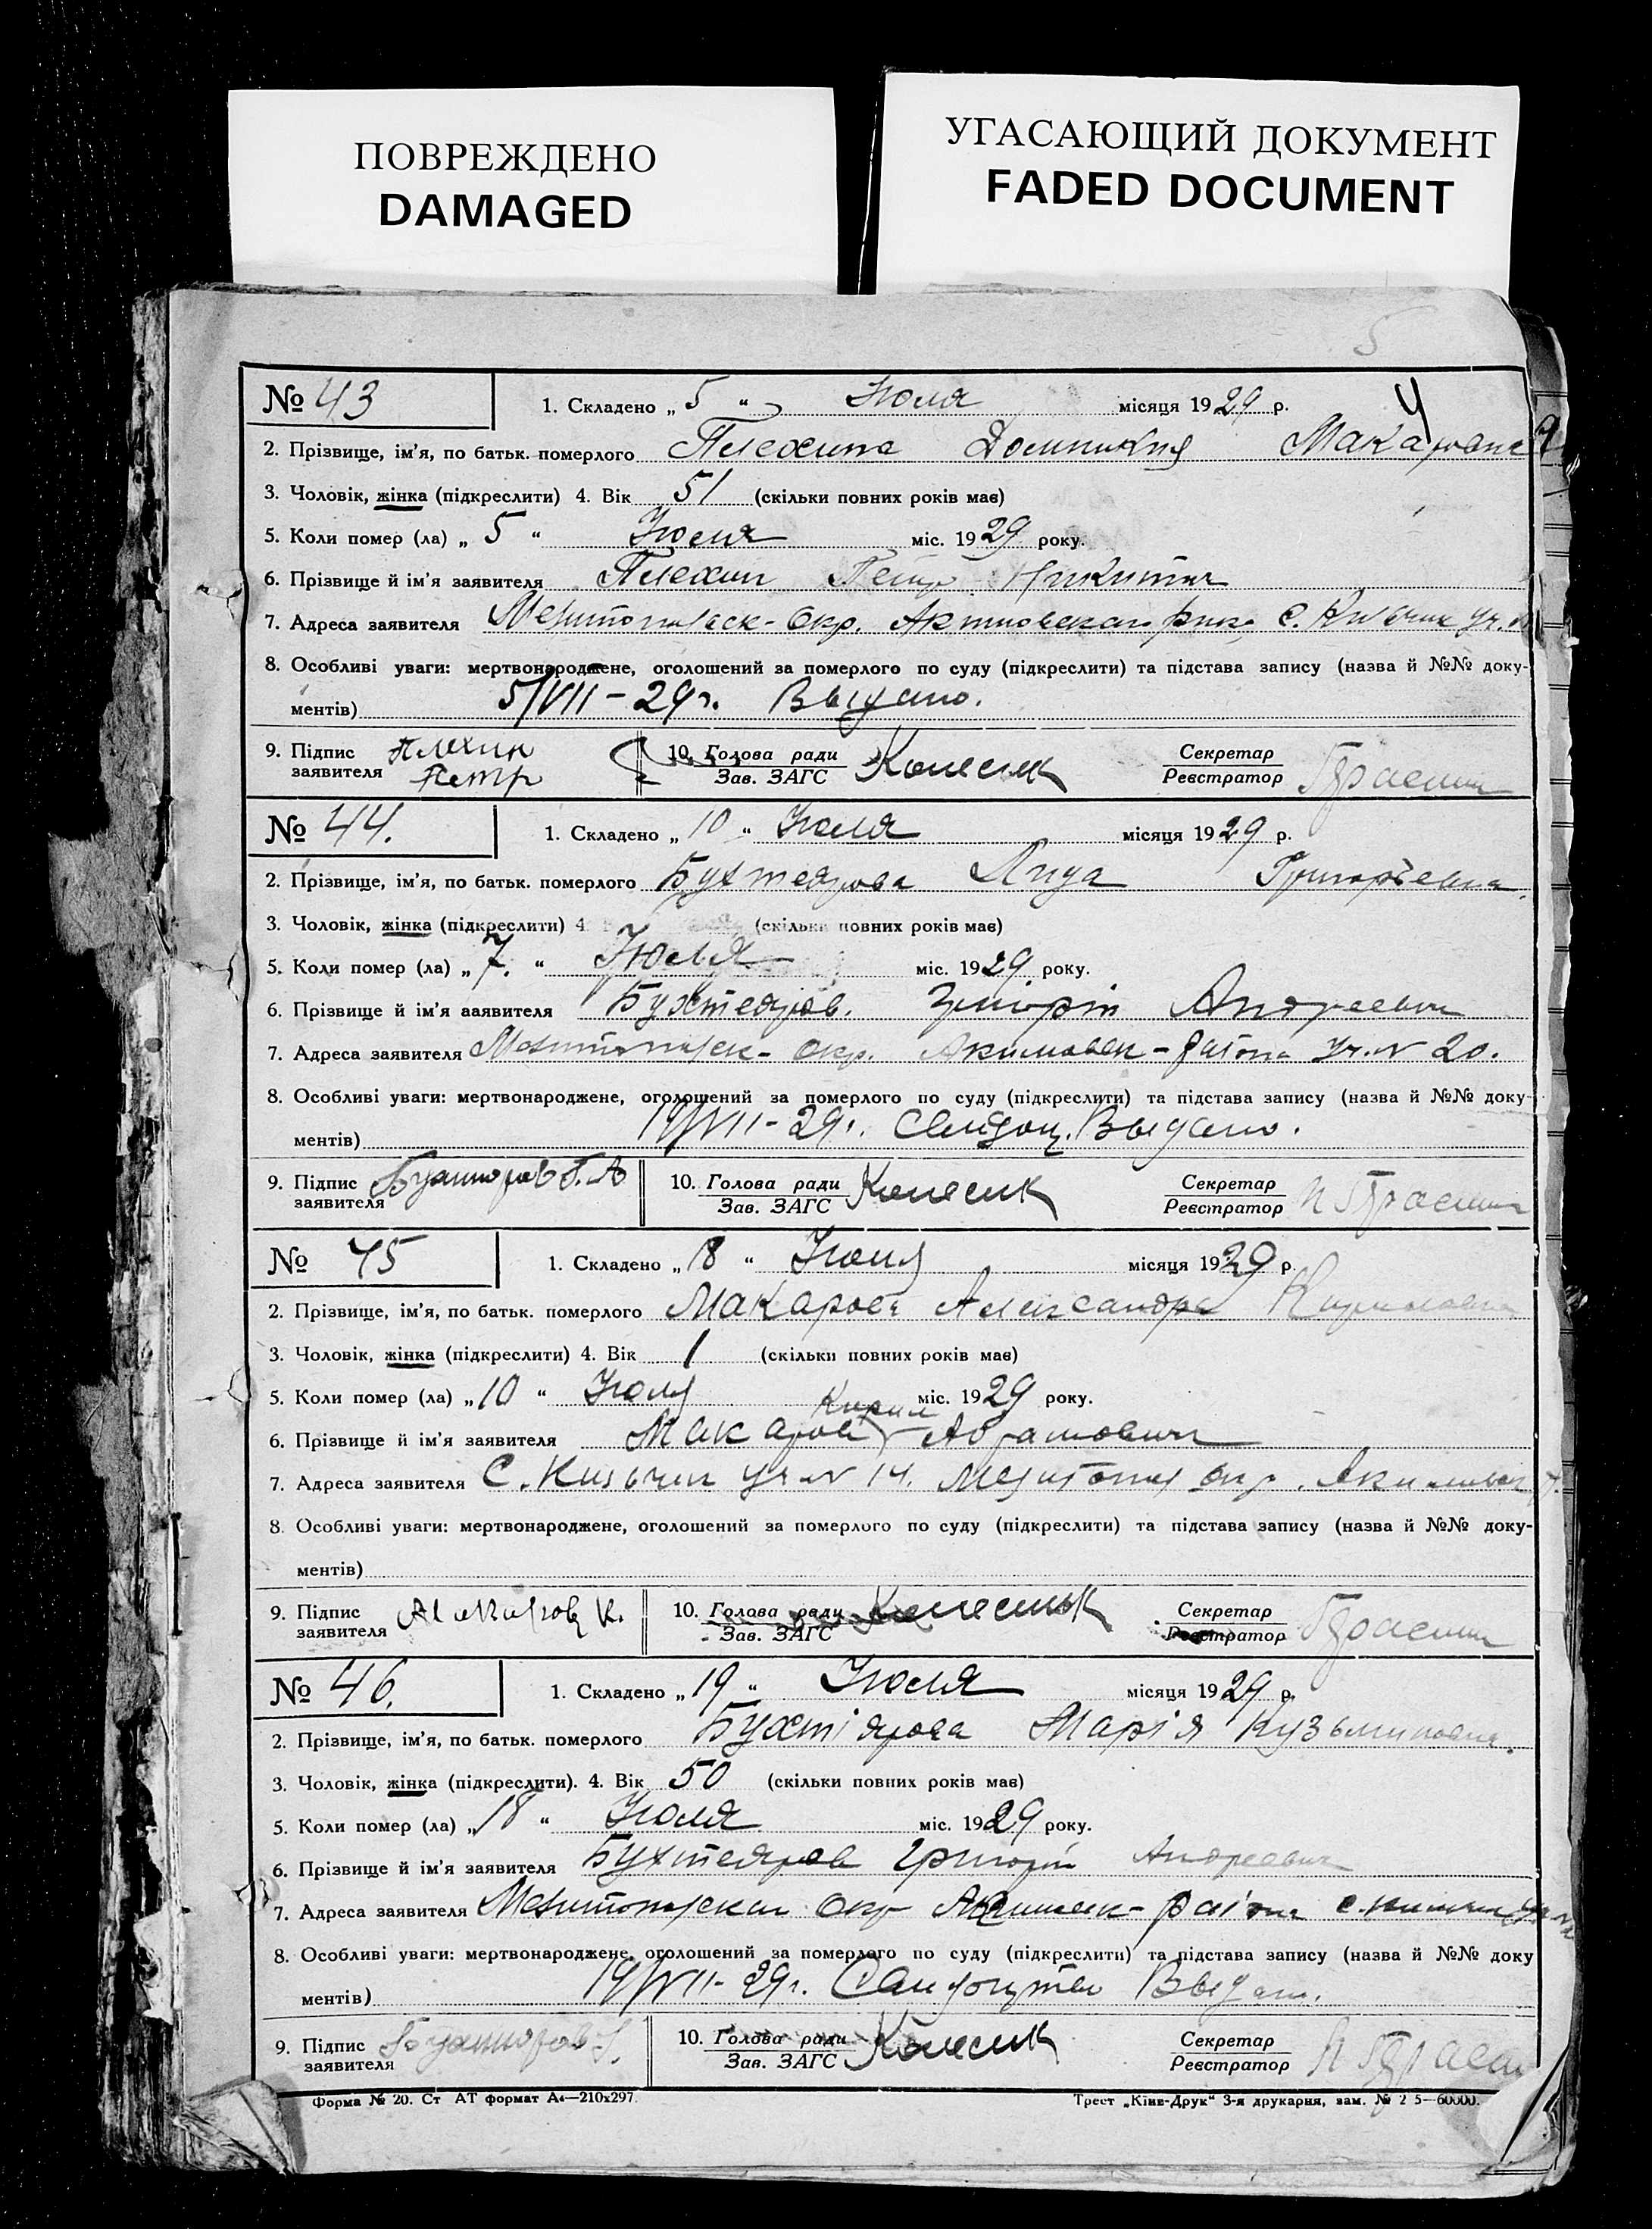 ПОВРЕЖДЕНО
DAMAGED
УГАСАЮЩИЙ ДОКУМЕНТ
FADED DOCUMENT
5
№ 43 1. Складено „ 5 “ Июля місяця 1929 р.
2. Прізвище, ім'я, по батьк. померлого Плехина
3. Чоловік, жінка (підкреслити) 4. Вік 51 (скільки повних років має)
5. Коли помер (ла) „ 5 “ Июля міс. 1929 року.
6. Прізвище й ім'я заявителя Плехин Петр Никитич
7. Адреса заявителя окр.
8. Особливі уваги: мертвонароджене, оголошений за померлого по суду (підкреслити) та підстава запису (назва й №№ доку-
ментів) 5/VII – 29 г. Выдано.
9. Підпис заявителя Плехин Петр 10. Голова ради Зав. ЗАГС Колесик Секретар Реєстратор
№ 44. 1. Складено „ 10 “ Июля місяця 1929 р.
2. Прізвище, ім'я, по батьк. померлого Бухтеярова Лида Григорьевна
3. Чоловік, жінка (підкреслити) 4 (скільки повних років має)
5. Коли помер (ла) „ 7. “ Июля міс. 1929 року.
6. Прізвище й ім'я заявителя Бухтеяров. Григорій Андреевич
7. Адреса заявителя окр. района уч. № 20.
8. Особливі уваги: мертвонароджене, оголошений за померлого по суду (підкреслити) та підстава запису (назва й №№ доку-
ментів) VII – 29 г. Выдано.
9. Підпис заявителя 10. Голова ради Зав. ЗАГС Колесик Секретар Реєстратор
№ 45 1. Складено „ 18 “ Июля місяця 1929 р.
2. Прізвище, ім'я, по батьк. померлого Макарова Александра Кириловна
3. Чоловік, жінка (підкреслити) 4. Вік 1 (скільки повних років має)
5. Коли помер (ла) „ 10 “ Июля міс. 1929 року.
Кирил
6. Прізвище й ім'я заявителя Макаров Абрамович
7. Адреса заявителя С. уч № 14. окр.
8. Особливі уваги: мертвонароджене, оголошений за померлого по суду (підкреслити) та підстава запису (назва й №№ доку-
ментів)
9. Підпис заявителя Макаров К. 10. Голова ради Зав. ЗАГС Колесник Секретар Реєстратор
№ 46. 1. Складено „ 19 “ Июля місяця 1929 р.
2. Прізвище, ім'я, по батьк. померлого Бухтіярова Марія Кузьминовна.
3. Чоловік, жінка (підкреслити). 4. Вік 50 (скільки повних років має)
5. Коли помер (ла) „ 18 “ Июля міс. 1929 року.
6. Прізвище й ім'я заявителя Бухтеяров Григорій Андреевич
7. Адреса заявителя окр района с.
8. Особливі уваги: мертвонароджене, оголошений за померлого по суду (підкреслити) та підстава запису (назва й №№ доку
ментів) 19/VII – 29 г.
9. Підпис заявителя 10. Голова ради Зав. ЗАГС Колесик Секретар Реєстратор
Форма № 20. Ст АТ формат А4—210х297
Трест „Київ-Друк“ 3-я друкарня, зам.